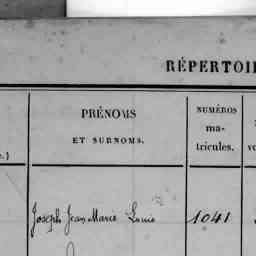 RÉPERTOI
PRÉNOMS
ET SURNOMS.
NUMÉROS
ma-
tricules.
Joseph Jean Marie Louis 1041